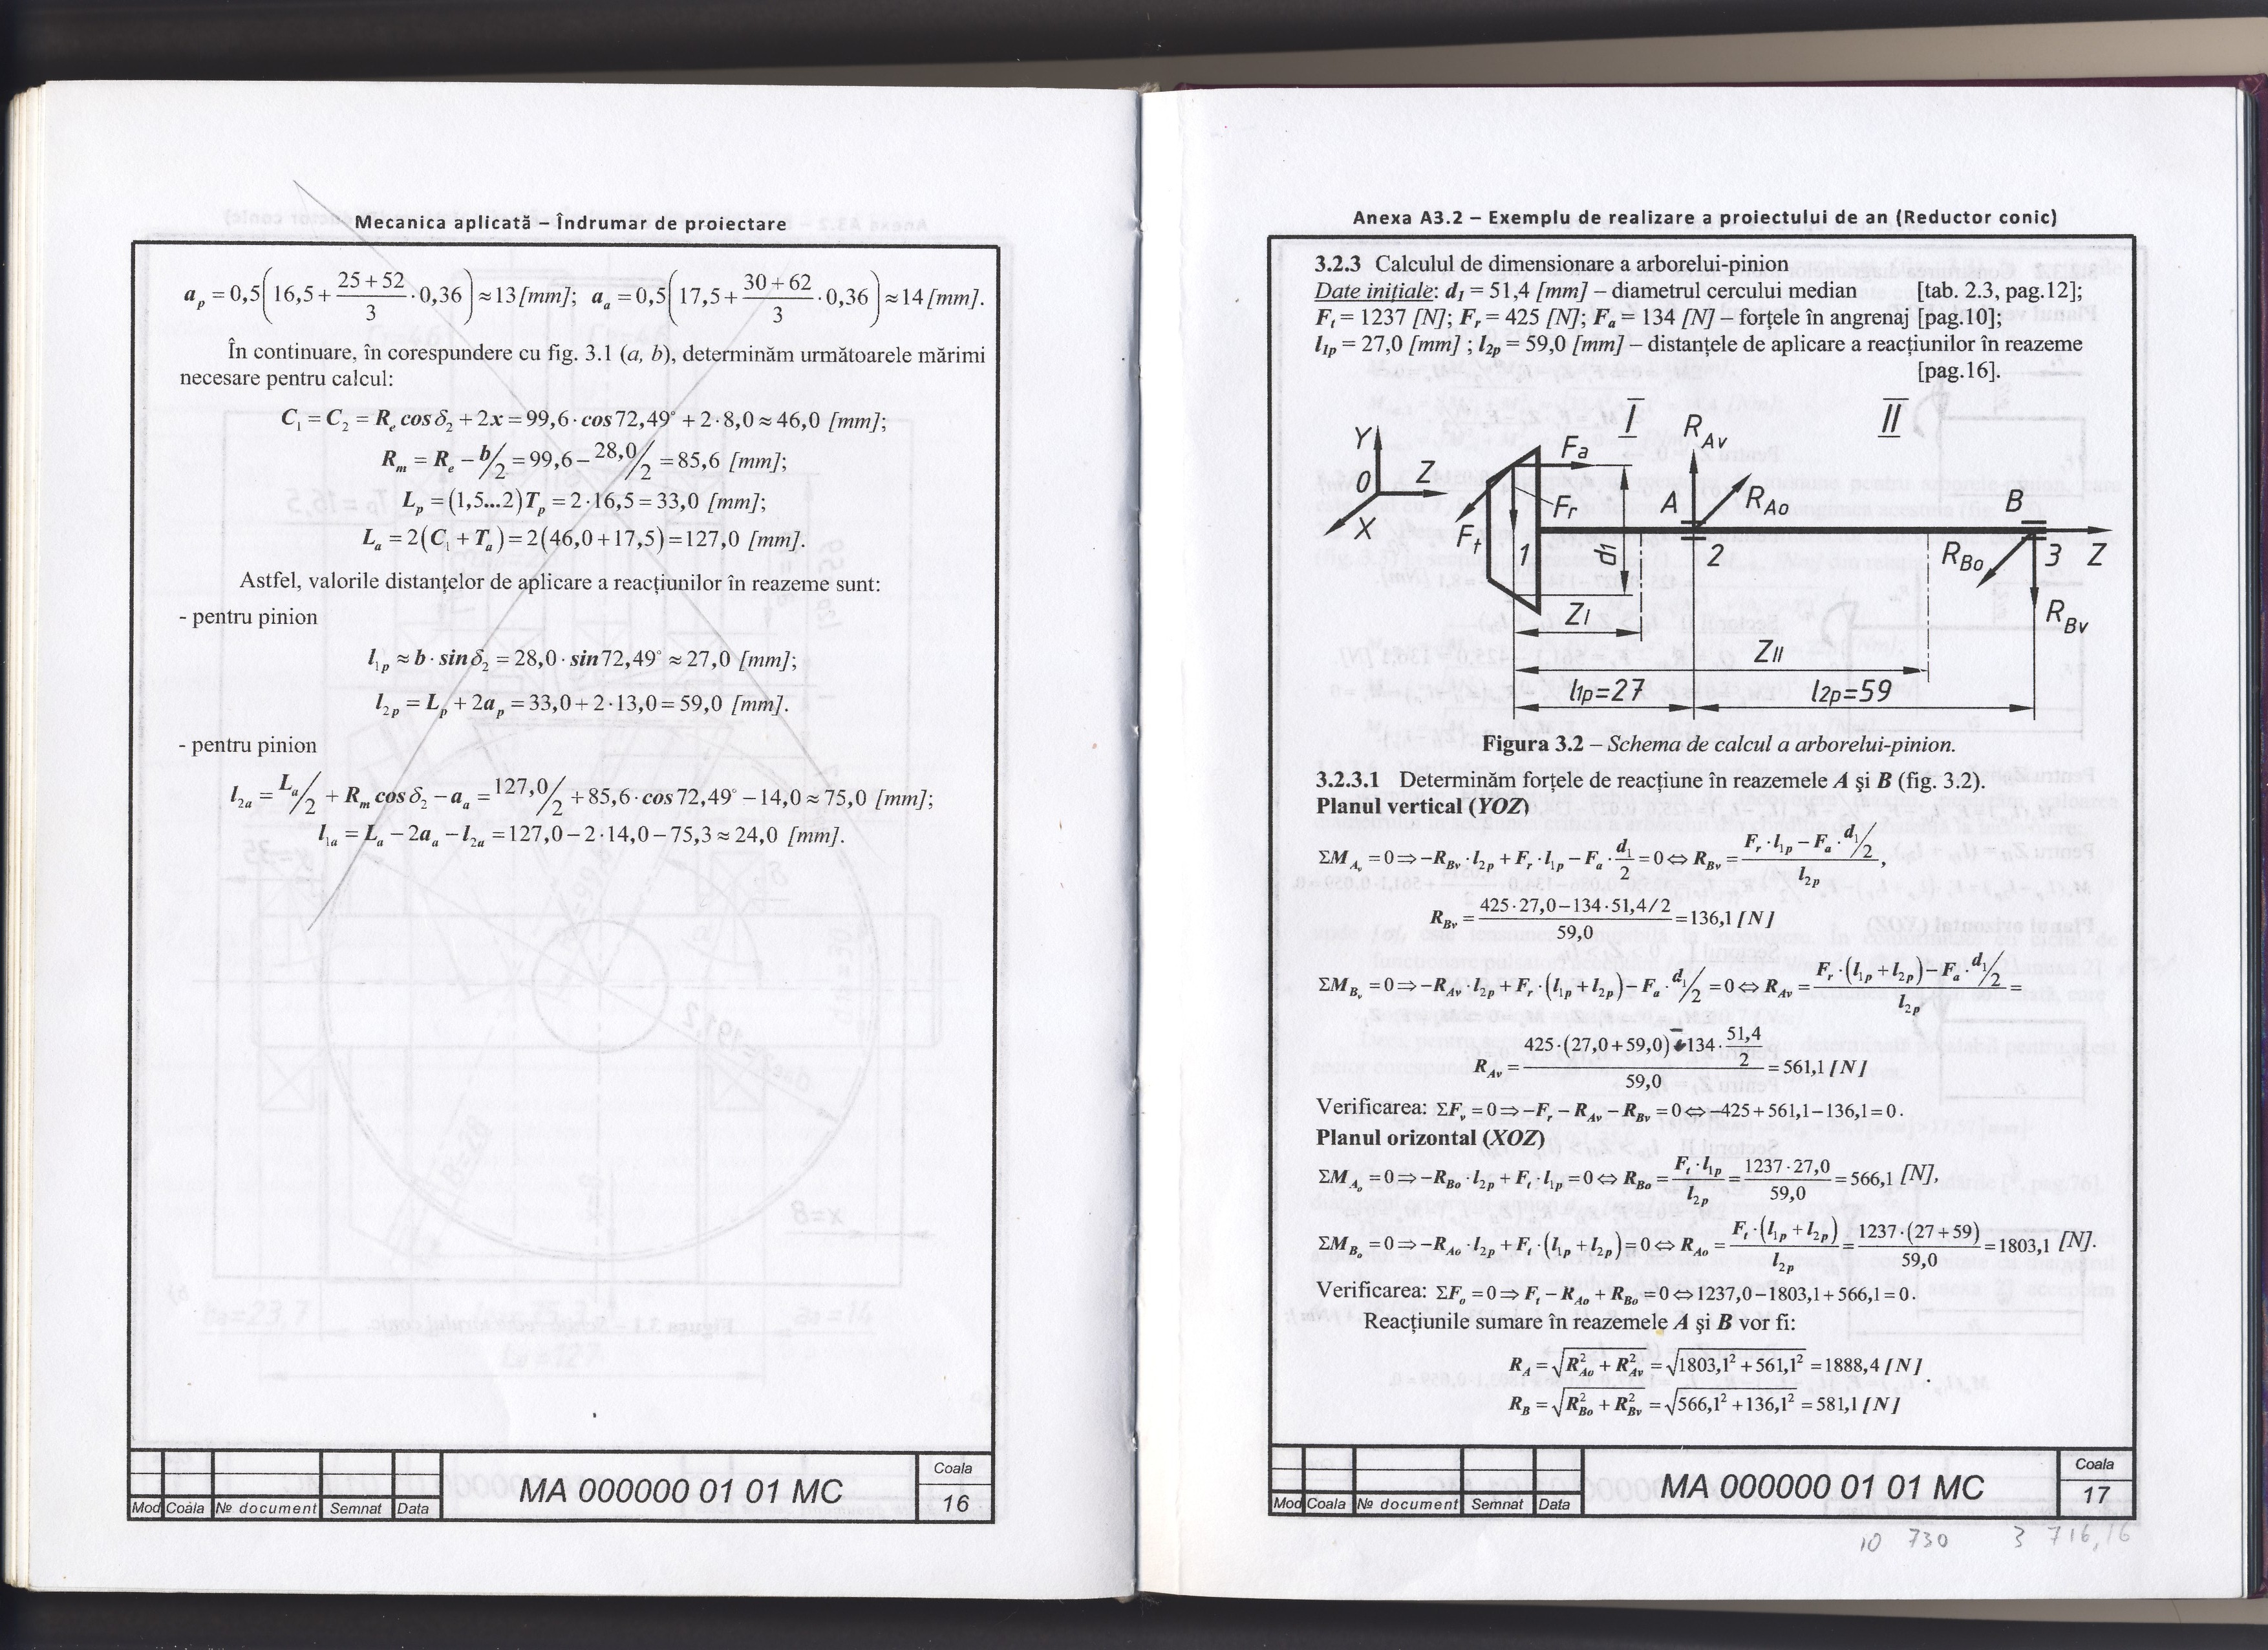 Mecanica aplicată – Îndrumar de proiectare
a_p = 0,5(16,5 + (25+52)/3 · 0,36) ≈ 13 [mm]; a_a = 0,5(17,5 + (30+62)/3 · 0,36) ≈ 14 [mm].
În continuare, în corespundere cu fig. 3.1 (a, b), determinăm următoarele mărimi
necesare pentru calcul:
C₁ = C₂ = R_e cos δ₂ + 2x = 99,6 · cos 72,49° + 2 · 8,0 ≈ 46,0 [mm];
R_m = R_e − b/2 = 99,6 − 28,0/2 = 85,6 [mm];
L_p = (1,5...2)T_p = 2 · 16,5 = 33,0 [mm];
L_a = 2(C₁ + T_a) = 2(46,0 + 17,5) = 127,0 [mm].
Astfel, valorile distanțelor de aplicare a reacțiunilor în reazeme sunt:
- pentru pinion
l_1p ≈ b · sin δ₂ = 28,0 · sin 72,49° ≈ 27,0 [mm];
l_2p = L_p + 2a_p = 33,0 + 2 · 13,0 = 59,0 [mm].
- pentru pinion
l_2a = L_a/2 + R_m cos δ₂ − a_a = 127,0/2 + 85,6 · cos 72,49° − 14,0 ≈ 75,0 [mm];
l_1a = L_a − 2a_a − l_2a = 127,0 − 2 · 14,0 − 75,3 ≈ 24,0 [mm].
Mod Coala № document Semnat Data
MA 000000 01 01 MC
Coala
16
Anexa A3.2 – Exemplu de realizare a proiectului de an (Reductor conic)
3.2.3 Calculul de dimensionare a arborelui-pinion
Date inițiale: d₁ = 51,4 [mm] – diametrul cercului median [tab. 2.3, pag.12];
F_t = 1237 [N]; F_r = 425 [N]; F_a = 134 [N] – forțele în angrenaj [pag.10];
l_1p = 27,0 [mm] ; l_2p = 59,0 [mm] – distanțele de aplicare a reacțiunilor în reazeme
[pag.16].
I II
Y 0 Z X
Fa Fr Ft 1 d1
R_Av A R_Ao 2
B R_Bo 3 Z R_Bv
ZI
ZII
l1p=27 l2p=59
Figura 3.2 – Schema de calcul a arborelui-pinion.
3.2.3.1 Determinăm forțele de reacțiune în reazemele A și B (fig. 3.2).
Planul vertical (YOZ)
ΣM_Av = 0 ⇒ −R_Bv · l_2p + F_r · l_1p − F_a · d₁/2 = 0 ⇔ R_Bv = (F_r · l_1p − F_a · d₁/2)/l_2p,
R_Bv = (425 · 27,0 − 134 · 51,4/2)/59,0 = 136,1 [N]
ΣM_Bv = 0 ⇒ −R_Av · l_2p + F_r · (l_1p + l_2p) − F_a · d₁/2 = 0 ⇔ R_Av = (F_r · (l_1p + l_2p) − F_a · d₁/2)/l_2p =
R_Av = (425 · (27,0 + 59,0) − 134 · 51,4/2)/59,0 = 561,1 [N]
Verificarea: ΣF_v = 0 ⇒ −F_r − R_Av − R_Bv = 0 ⇔ −425 + 561,1 − 136,1 = 0.
Planul orizontal (XOZ)
ΣM_Ao = 0 ⇒ −R_Bo · l_2p + F_t · l_1p = 0 ⇔ R_Bo = F_t · l_1p/l_2p = 1237 · 27,0/59,0 = 566,1 [N],
ΣM_Bo = 0 ⇒ −R_Ao · l_2p + F_t · (l_1p + l_2p) = 0 ⇔ R_Ao = F_t · (l_1p + l_2p)/l_2p = 1237 · (27 + 59)/59,0 = 1803,1 [N].
Verificarea: ΣF_o = 0 ⇒ F_t − R_Ao + R_Bo = 0 ⇔ 1237,0 − 1803,1 + 566,1 = 0.
Reacțiunile sumare în reazemele A și B vor fi:
R_A = √(R²_Ao + R²_Av) = √(1803,1² + 561,1²) = 1888,4 [N].
R_B = √(R²_Bo + R²_Bv) = √(566,1² + 136,1²) = 581,1 [N]
Mod Coala № document Semnat Data
MA 000000 01 01 MC
Coala
17
10 730 3 716,16